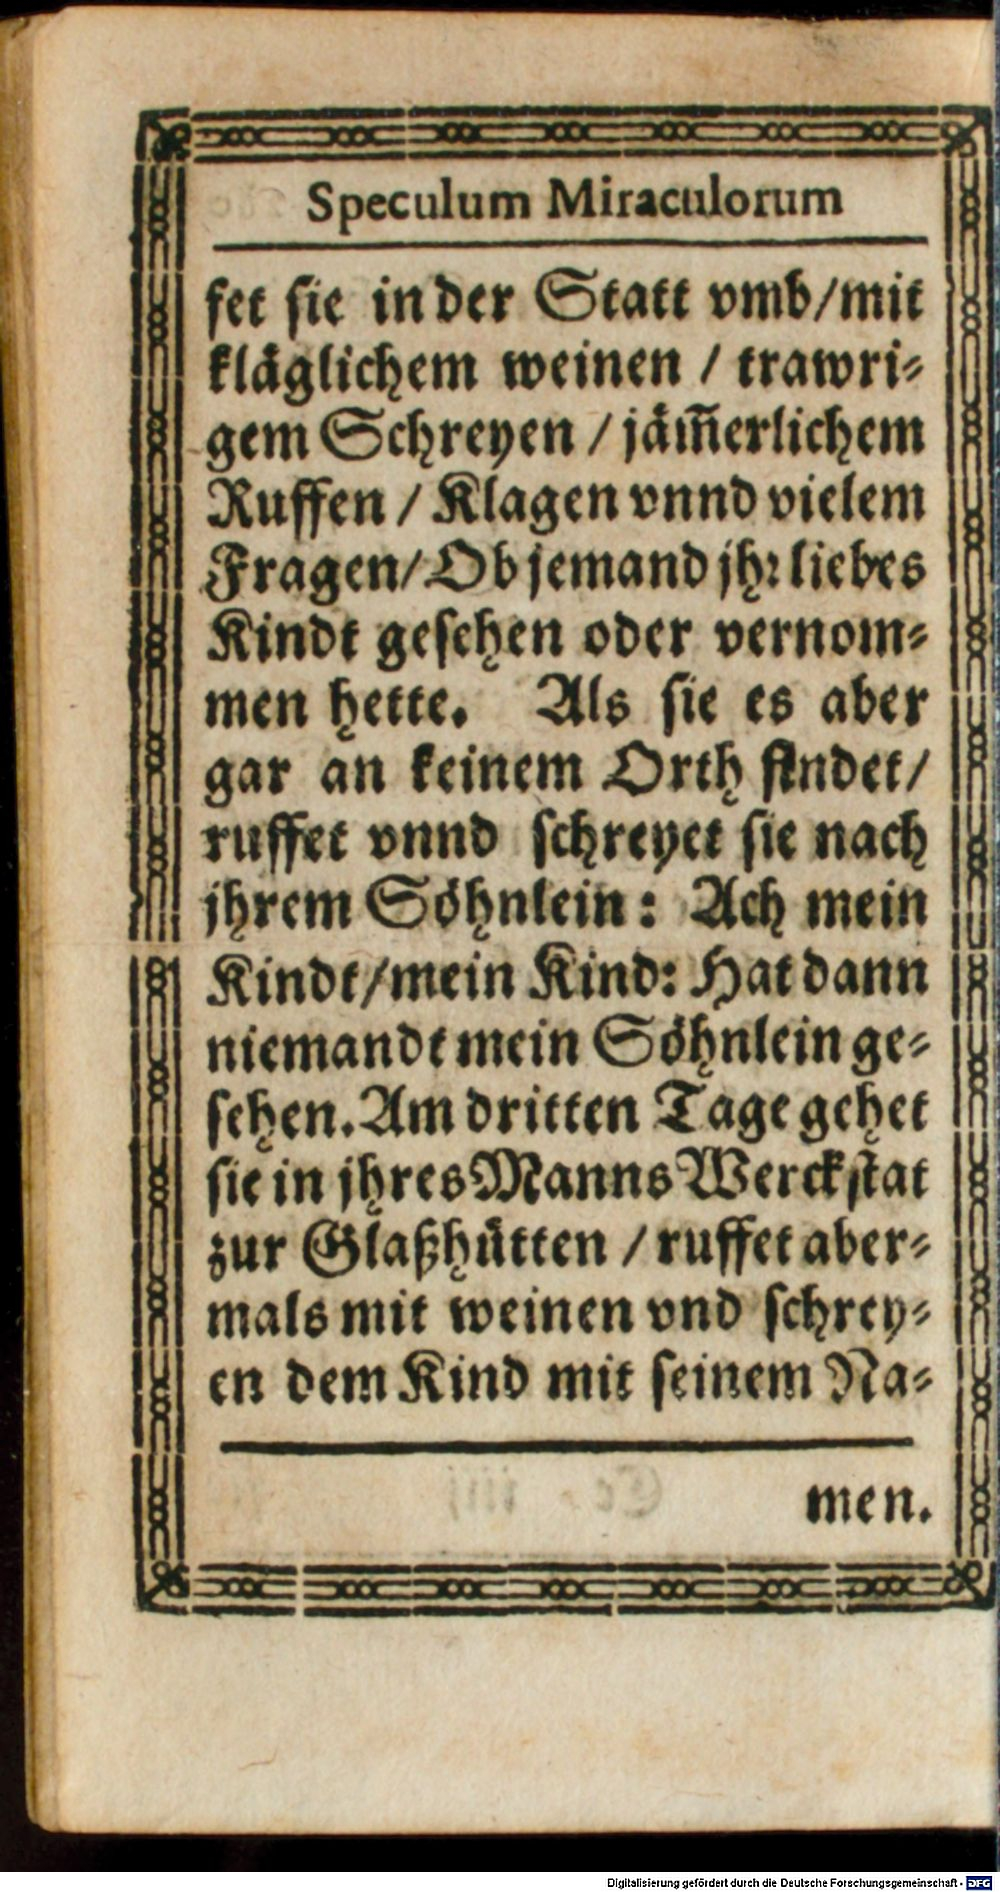 Speculum Miraculorum
fet sie in der Statt vmb/mit
kläglichem weinen / trawri⸗
gem Schreyen / jäm̅erlichem
Ruffen / Klagen vnnd vielem
Fragen/ Ob jemand jhr liebes
Kindt gesehen oder vernom⸗
men hette. Als sie es aber
gar an keinem Orth findet/
ruffet vnnd schreyet sie nach
jhrem Söhnlein: Ach mein
Kindt/mein Kind: Hat dann
niemandt mein Söhnlein ge⸗
sehen. Am dritten Tage gehet
sie in jhres Manns Werckstat
zur Glaßhütten / ruffet aber⸗
mals mit weinen vnd schrey⸗
en dem Kind mit seinem Na⸗
men.
Digitalisierung gefördert durch die Deutsche Forschungsgemeinschaft - DFG